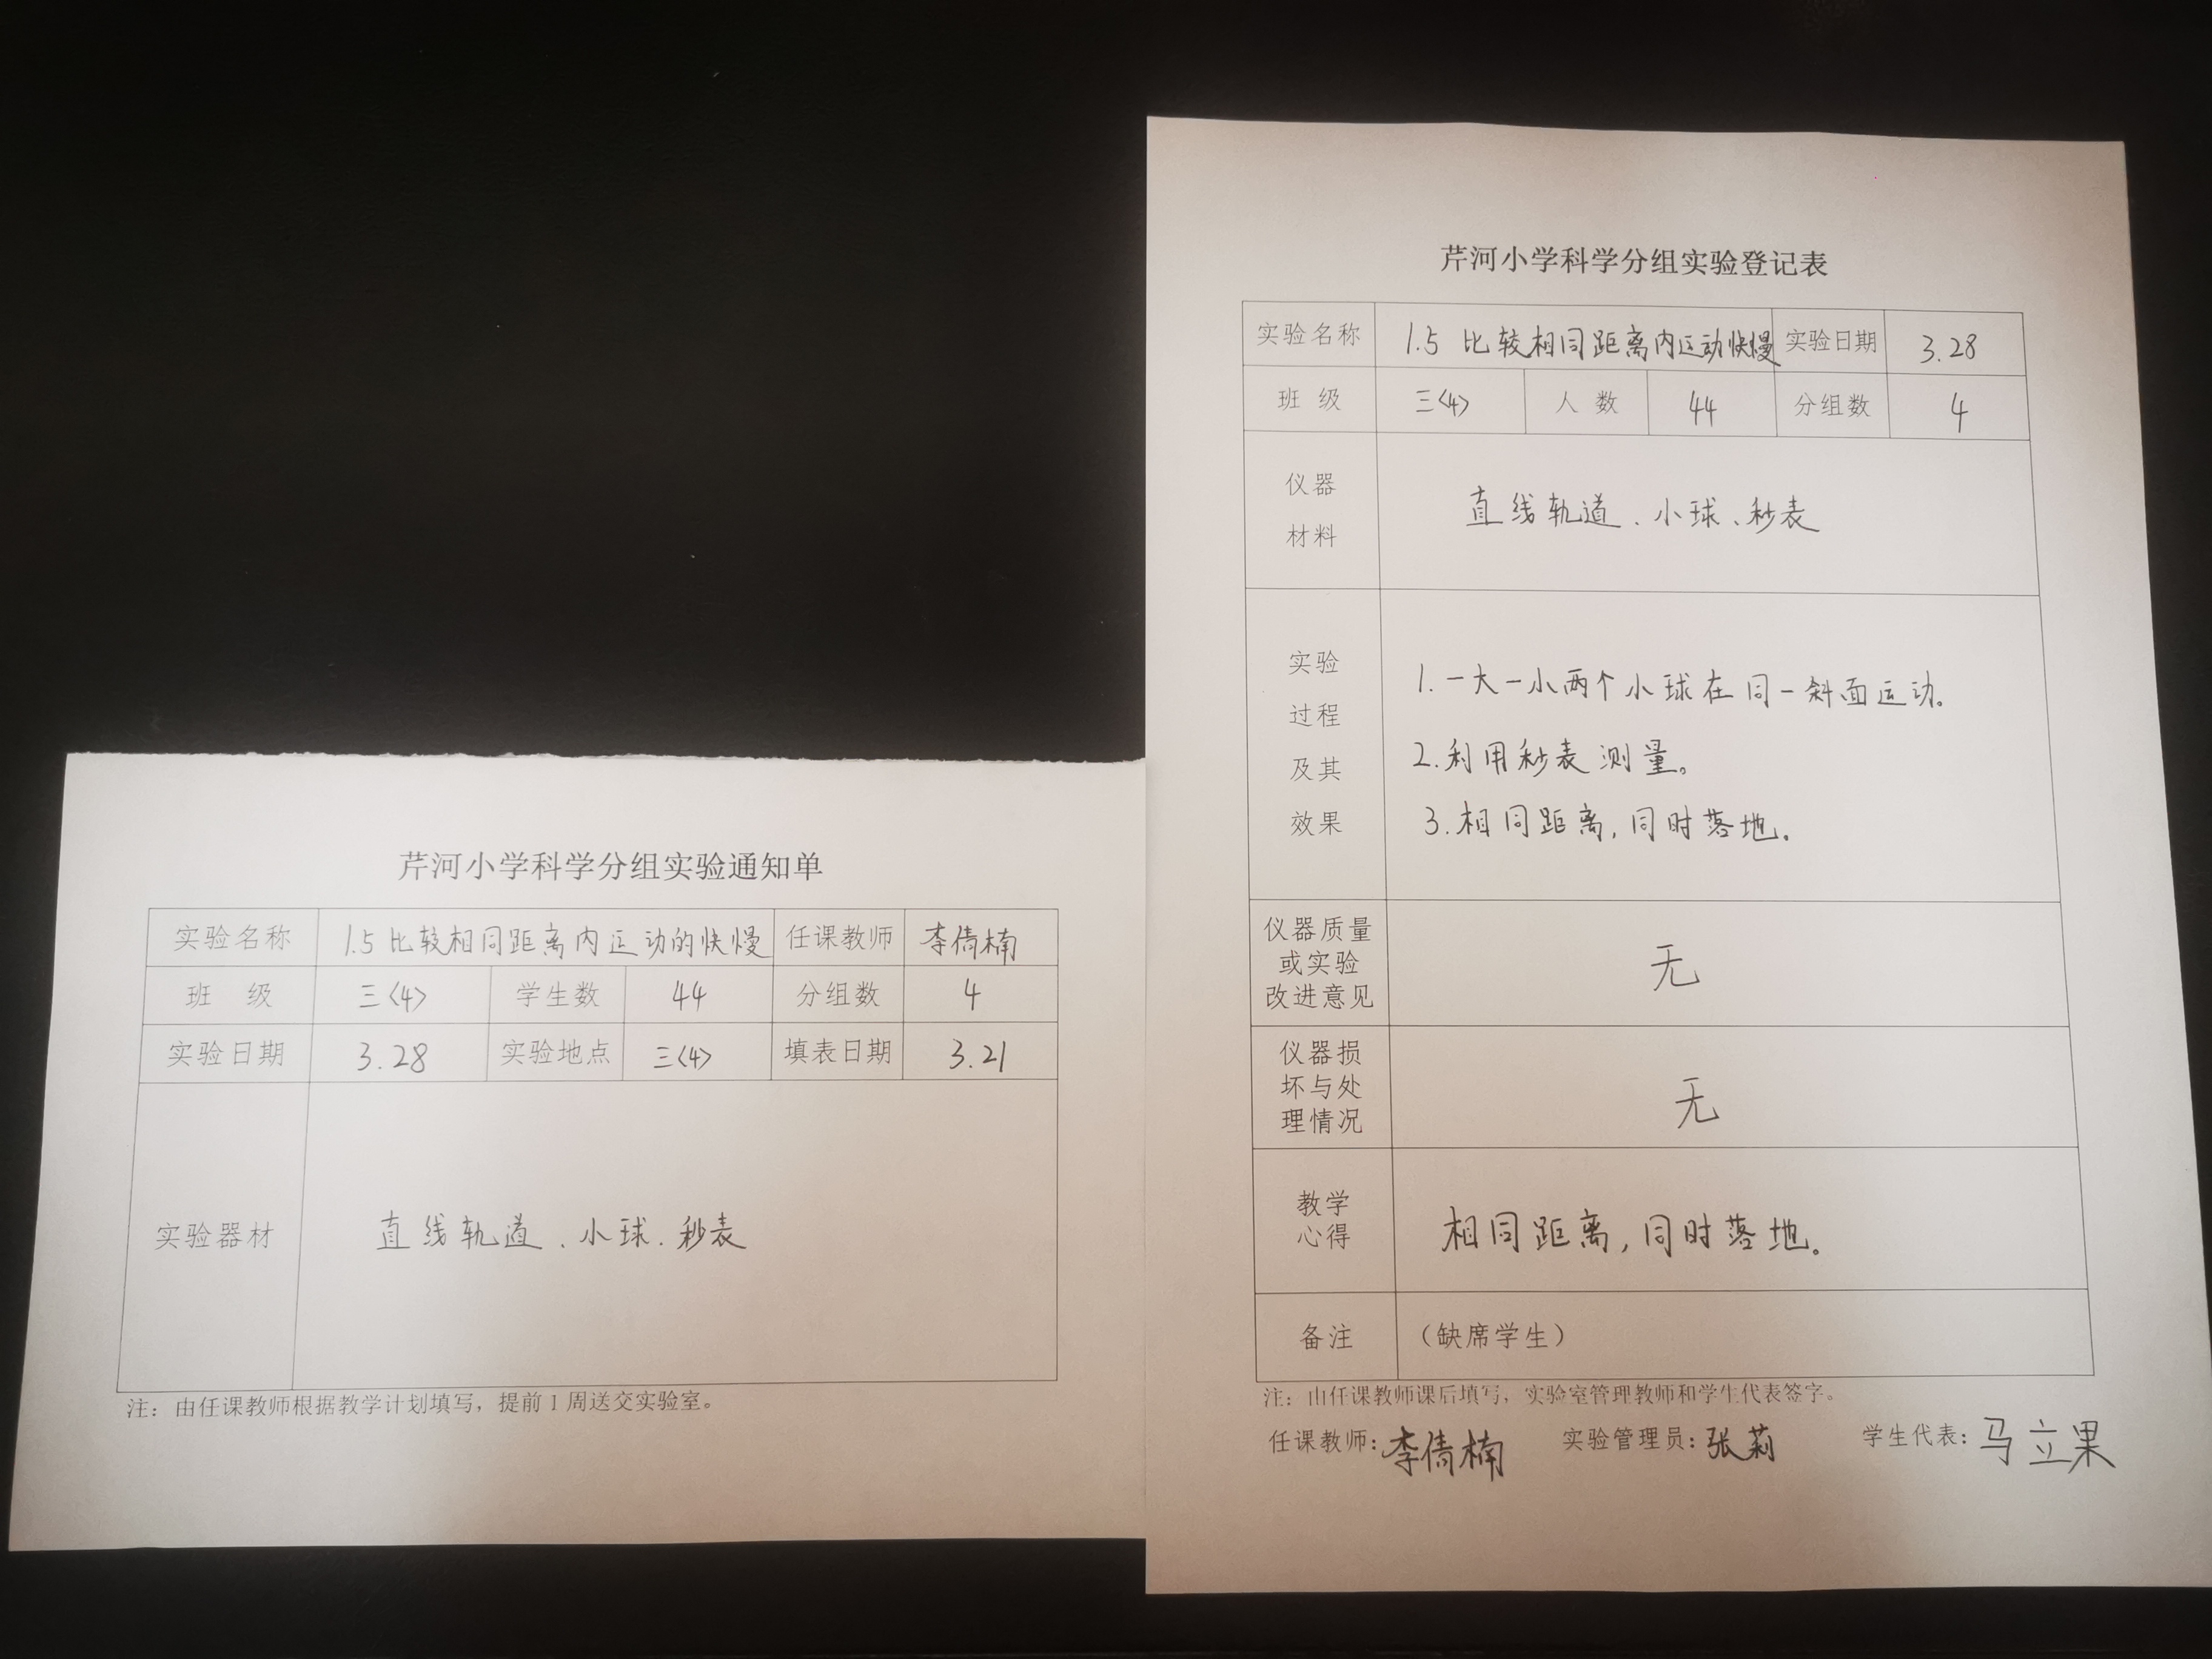 芹河小学科学分组实验通知单
实验名称 1.5 比较相同距离内运动的快慢 任课教师 李倩楠
班 级 三<4> 学生数 44 分组数 4
实验日期 3.28 实验地点 三<4> 填表日期 3.21
实验器材 直线轨道、小球、秒表
注：由任课教师根据教学计划填写，提前1周送交实验室。
芹河小学科学分组实验登记表
实验名称 1.5 比较相同距离内运动快慢 实验日期 3.28
班 级 三<4> 人 数 44 分组数 4
仪器
材料
直线轨道、小球、秒表
实验
过程
及其
效果
1.一大一小两个小球在同一斜面运动。
2.利用秒表测量。
3.相同距离,同时落地。
仪器质量
或实验
改进意见
无
仪器损
坏与处
理情况
无
教学
心得
相同距离,同时落地。
备注 （缺席学生）
注：由任课教师课后填写，实验室管理教师和学生代表签字。
任课教师：李倩楠 实验管理员：张莉 学生代表：马立果